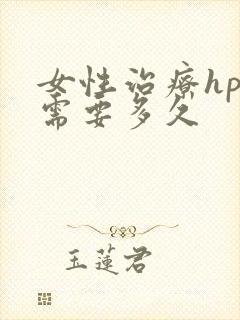 女性治療hp
需要多久
玉蓮君